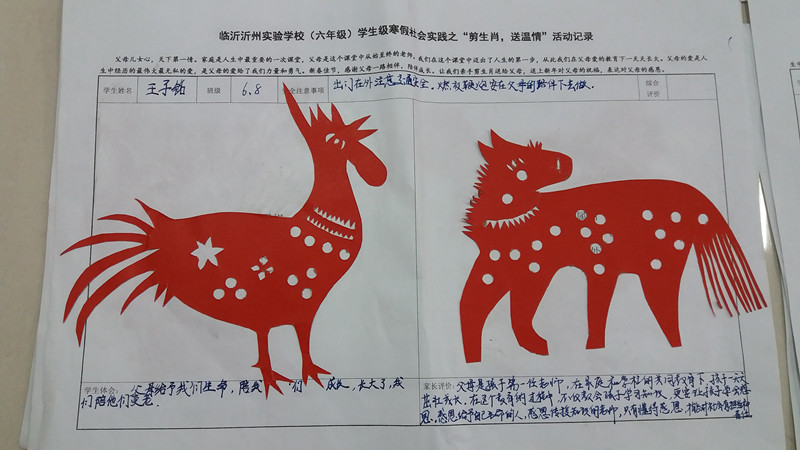 临沂沂州实验学校（六年级）学生级寒假社会实践之“剪生肖，送温情”活动记录
父母儿女心，天下第一情。家庭是人生中最重要的一次课堂，父母是这个课堂中从始至终的老师。我们在这个课堂中迈出了人生的第一步，从此我们在父母爱的教育下一天天长大。父母的爱是人
生中经历的最伟大最无私的爱，是父母的爱给了我们力量和勇气。新春佳节，感谢父母一路相伴，陪伴成长，让我们亲手剪生肖送给父母，送上新年对父母的祝福，表达对父母的感恩。
学生姓名 王子铭 班级 6.8 全注意事项 出门在外注意交通安全，燃放鞭炮要在父母的陪伴下去做。 综合
评价
学生体会： 父母给予我们生命，陪我 们 成长，长大了，我
们陪他们变老。
家长评价：父母是孩子第一任老师，在家庭和学校的共同教育下，孩子一天天
茁壮成长，在这个教育的过程中，不仅教会孩子学习知识，更要让孩子学会感
恩，感恩给予自己生命的人，感恩传授知识的老师，只有懂得感恩，